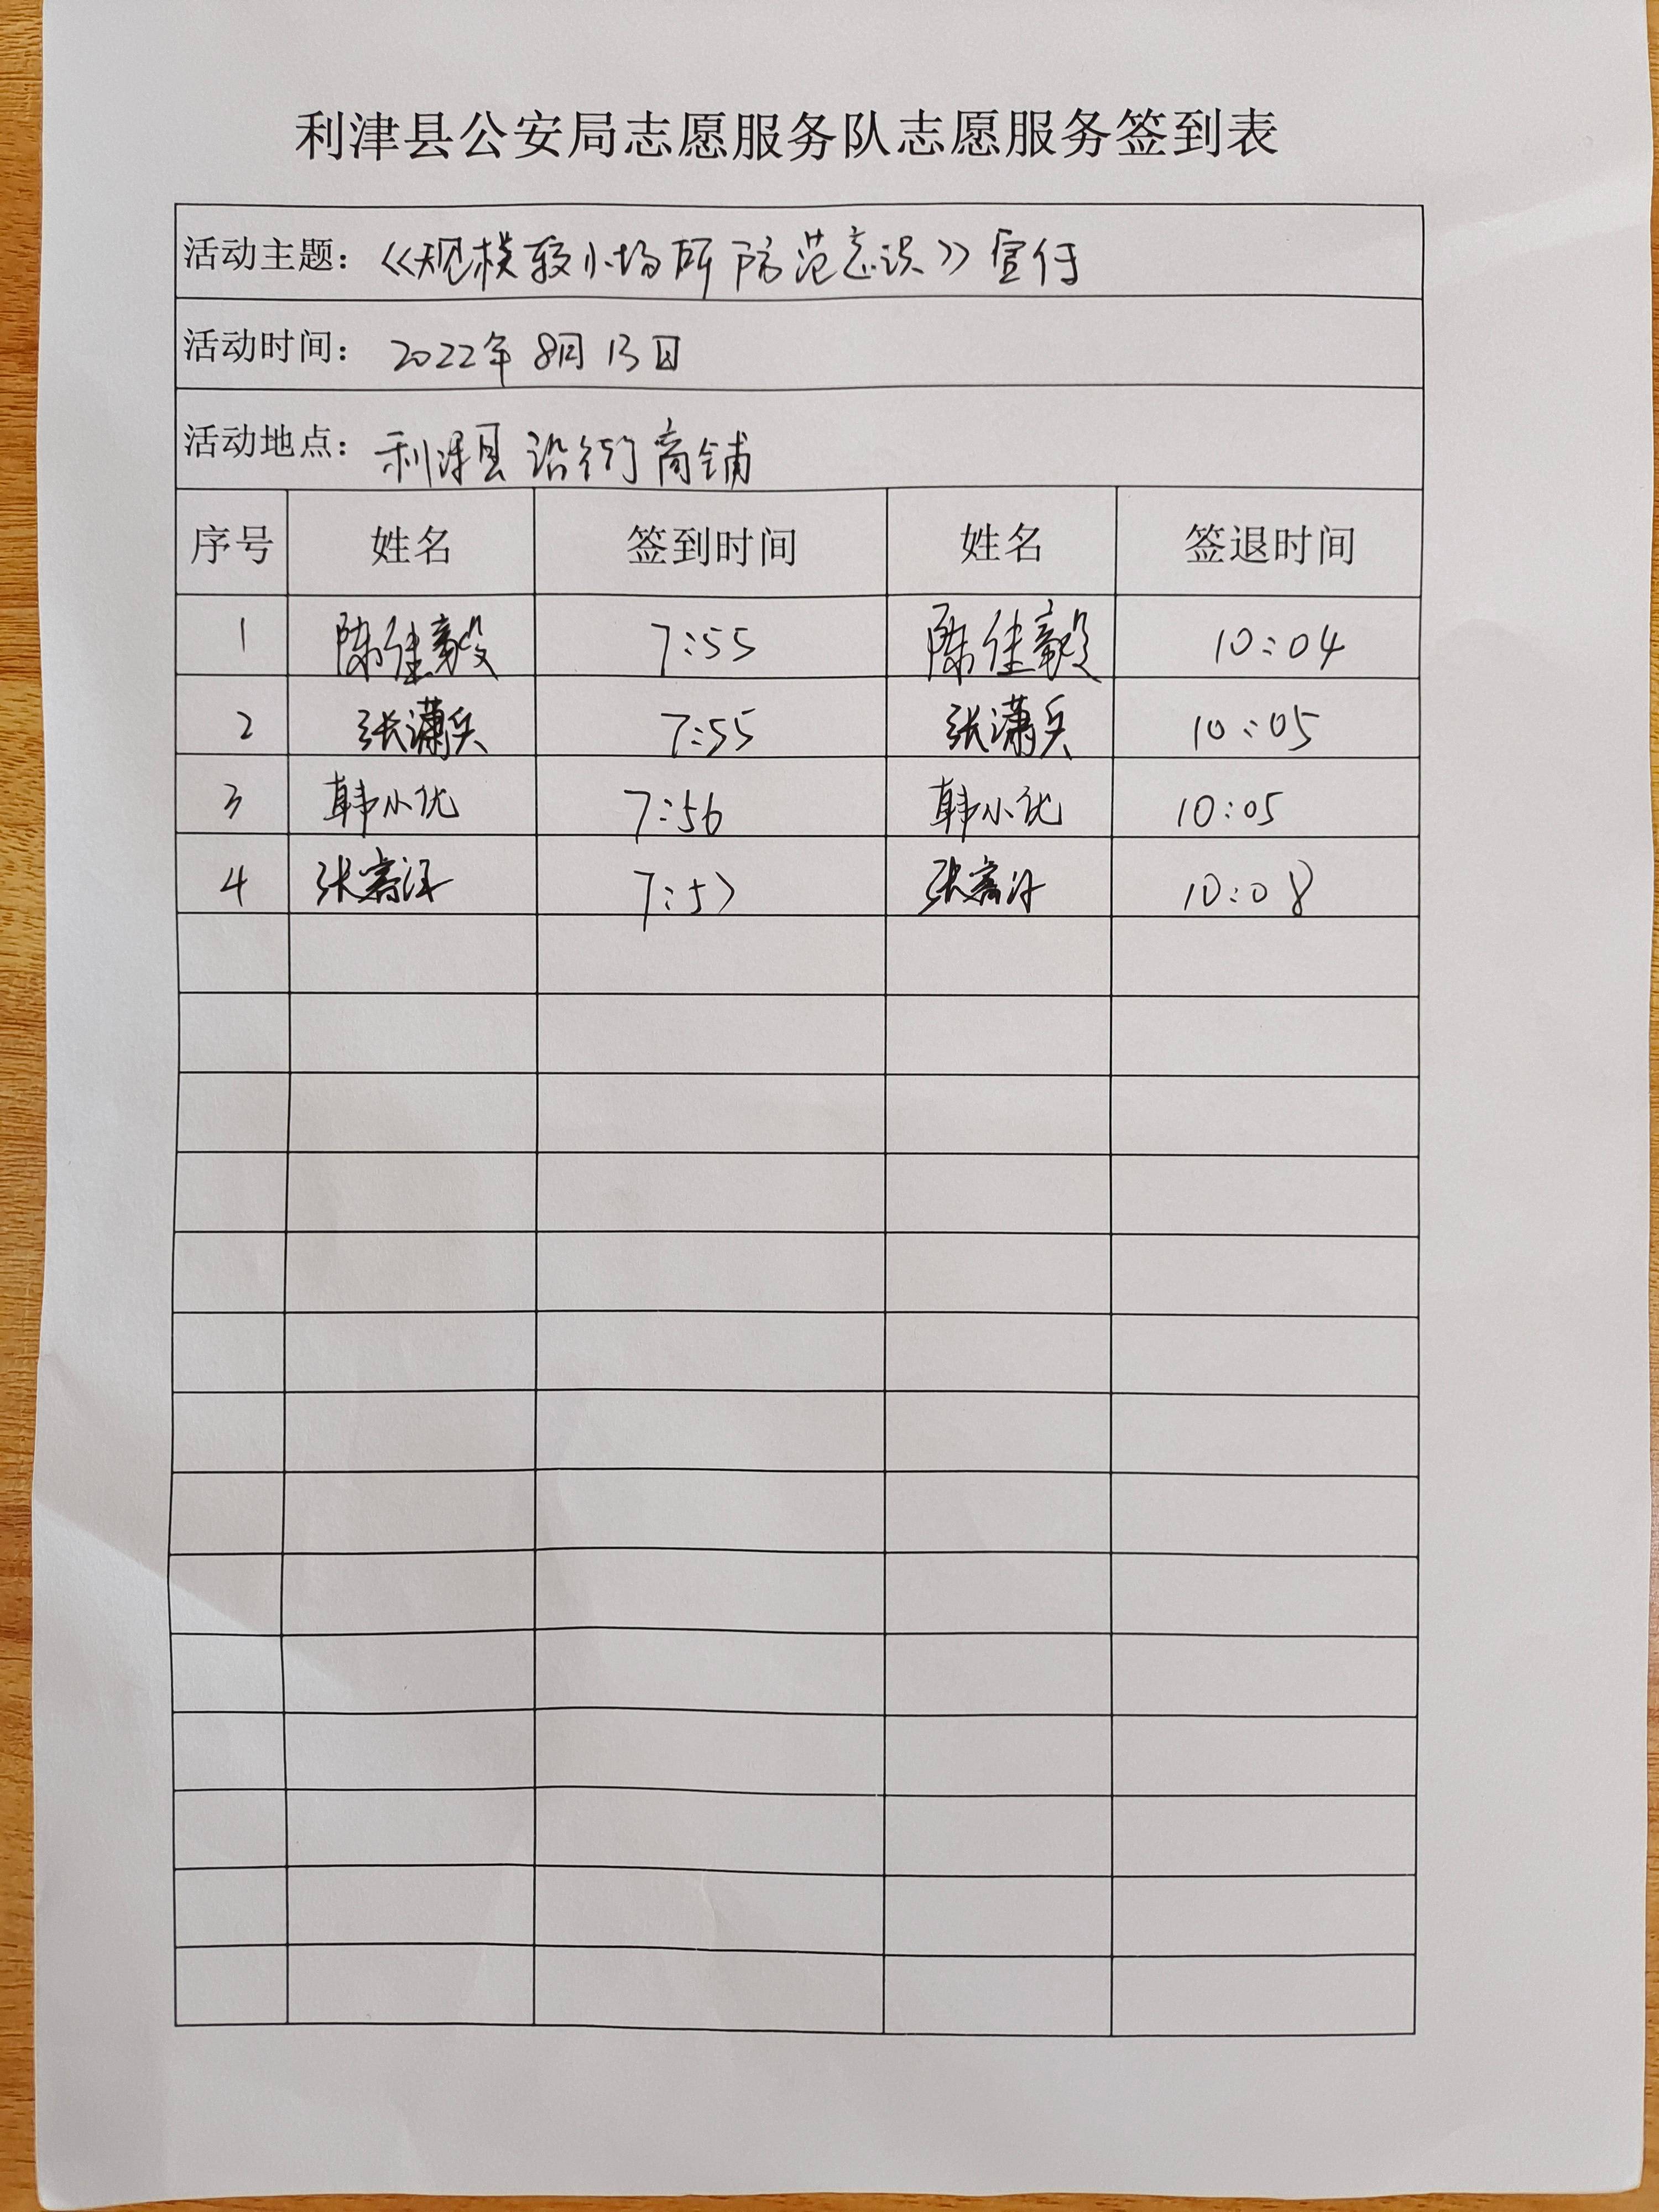 利津县公安局志愿服务队志愿服务签到表
活动主题：《规模较小场所防范意识》宣传
活动时间：2022年8月13日
活动地点：利津县沿街商铺
序号 姓名 签到时间 姓名 签退时间
1 陈佳毅 7:55 陈佳毅 10:04
2 张潇兵 7:55 张潇兵 10:05
3 韩小优 7:56 韩小优 10:05
4 张 7:57 张 10:08